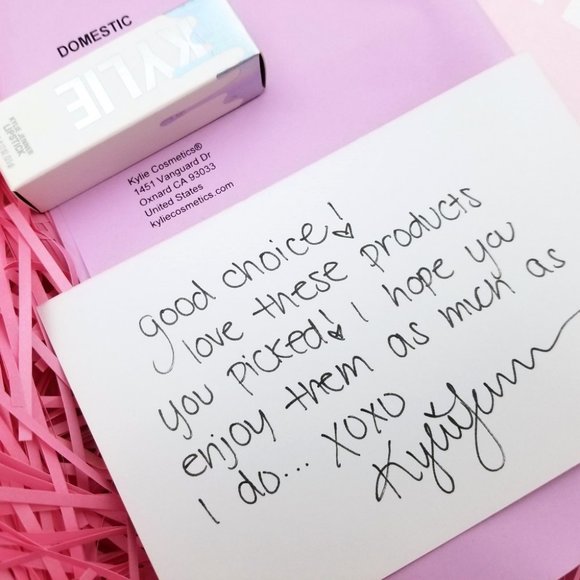 DOMESTIC
KYLIE
KYLIE JENNER
LIPSTICK
Kylie Cosmetics®
1451 Vanguard Dr
Oxnard CA 93033
United States
kyliecosmetics.com
good choice!
I love these products
you picked! I hope you
enjoy them as much as
I do... XOXO
Kylie Jenner